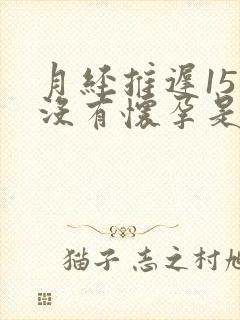 月经推遲15
没有懷孕是
猫子 志之村旭